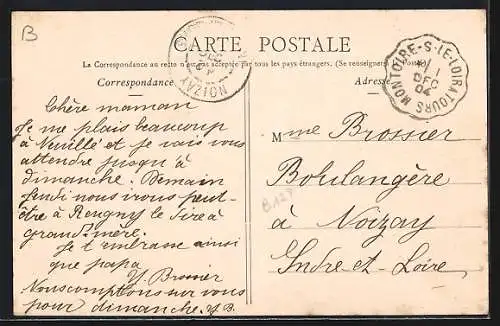 B
CARTE POSTALE
La Correspondance au recto n'est pas acceptée par tous les pays étrangers. (Se renseigner à la Poste)
Correspondance
Adresse
NOIZAY
MONTOIRE-S-LE-LOIR A TOURS
1
DEC
04
Chère maman
Je me plais beaucoup
à Neuillé et je vais vous
attendre jusqu'à
dimanche. Demain
jeudi nous irons peut-
être à Reugny le dire à
grand'mère.
Je t'embrasse ainsi
que papa
Y. Brosier
Nous comptons sur vous
pour dimanche. Y.B.
Mme Brosier
Boulangère
à Noizay
Indre-et-Loire